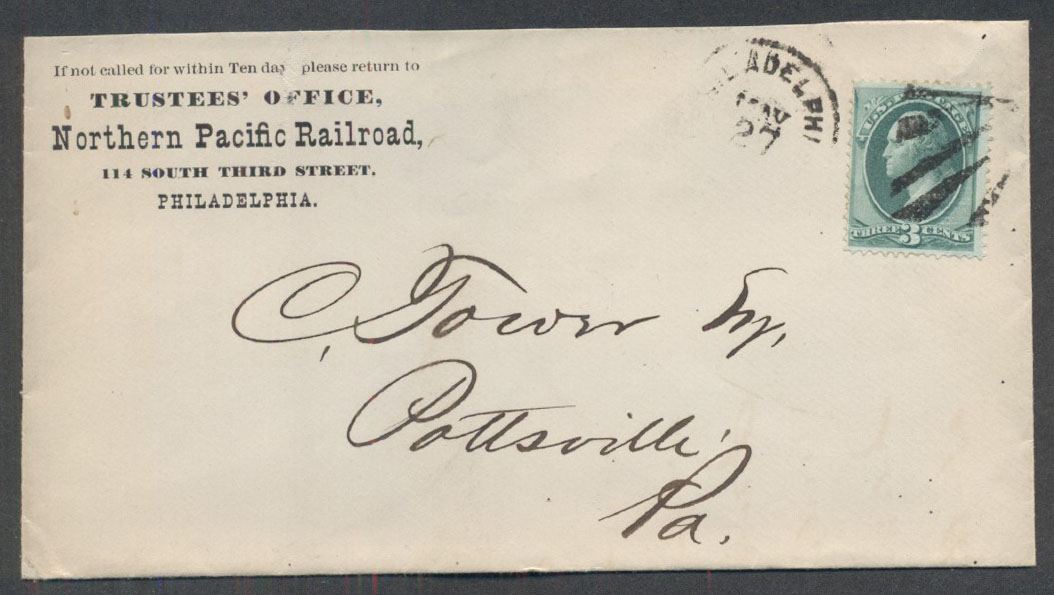 If not called for within Ten day please return to
TRUSTEES' OFFICE,
Northern Pacific Railroad,
114 SOUTH THIRD STREET.
PHILADELPHIA.
ADELPHI
U.S. POSTAGE
THREE 3 CENTS
C. Tower Esq.
Pottsville
Pa.